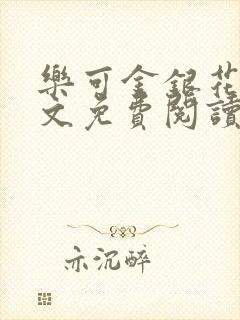 樂可金銀花
文免費閱讀
亦沉醉